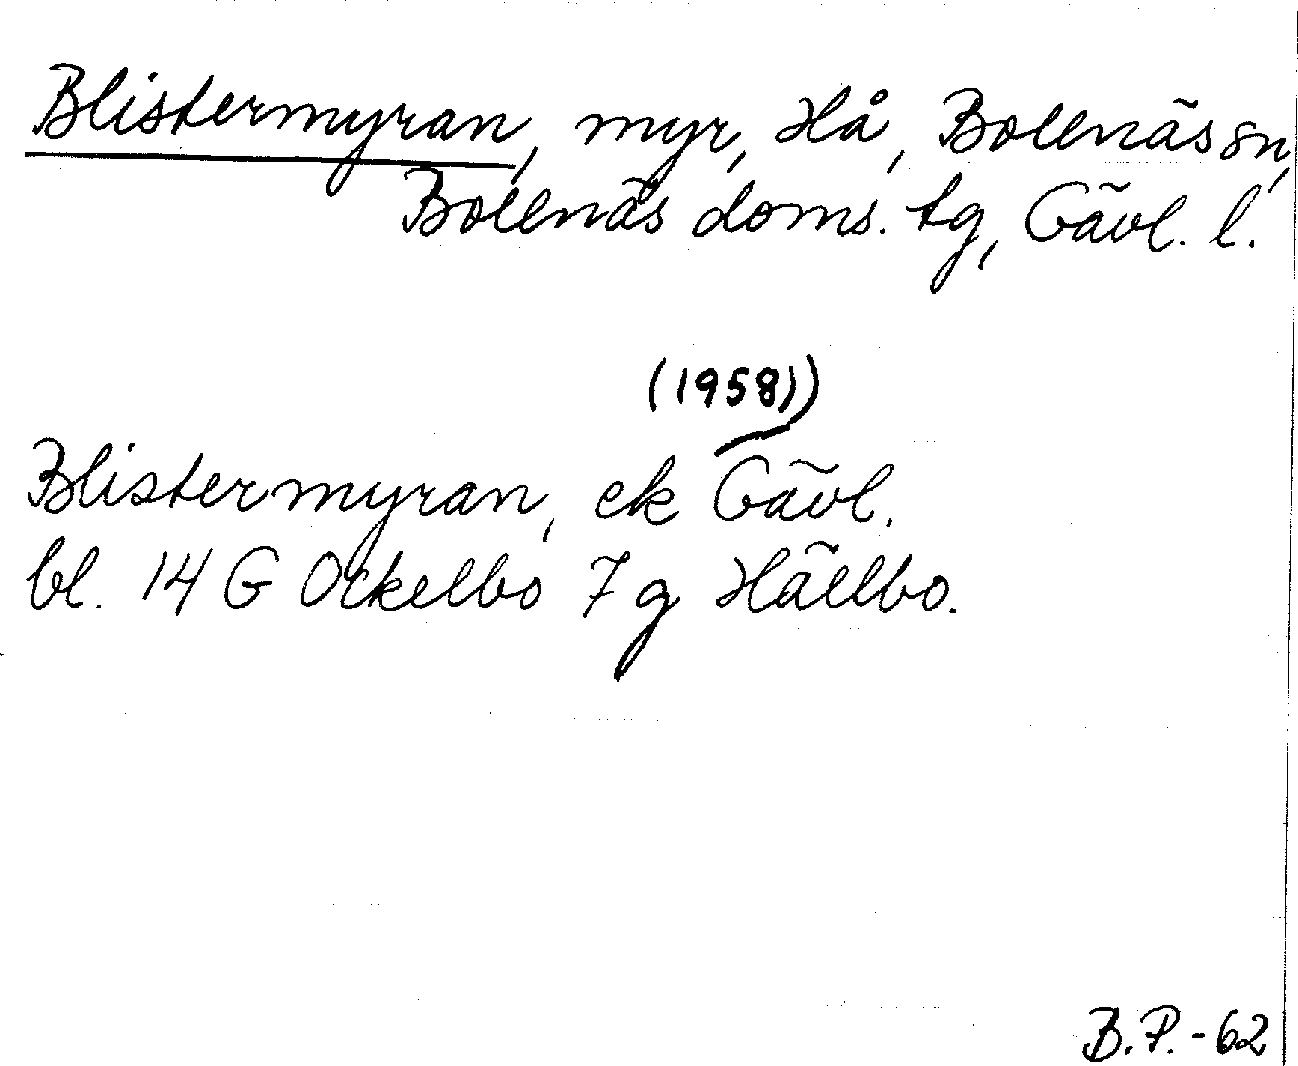 Blistermyran, myr, Hå, Bollnäs sn,
Bollnäs doms. tg, Gävl. l.
(1958))
Blistermyran, ek Gävl.
bl. 14 G Ockelbo 7 g Hällbo.
B.P.-62